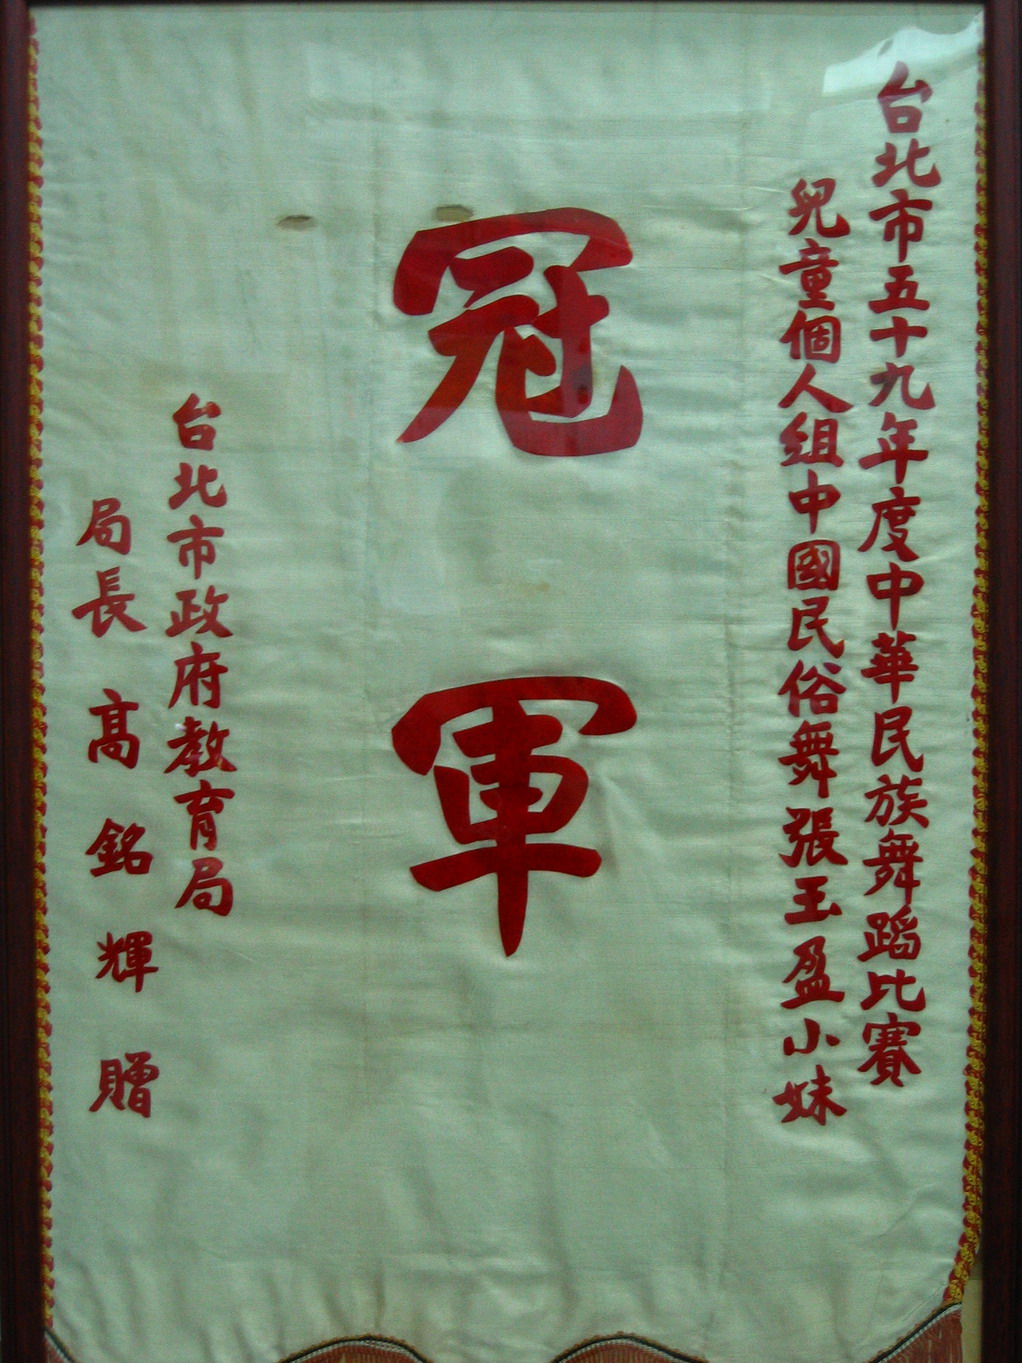 台北市五十九年度中華民族舞蹈比賽
兒童個人組中國民俗舞張玉盈小妹
冠軍
台北市政府教育局
局長高銘輝贈